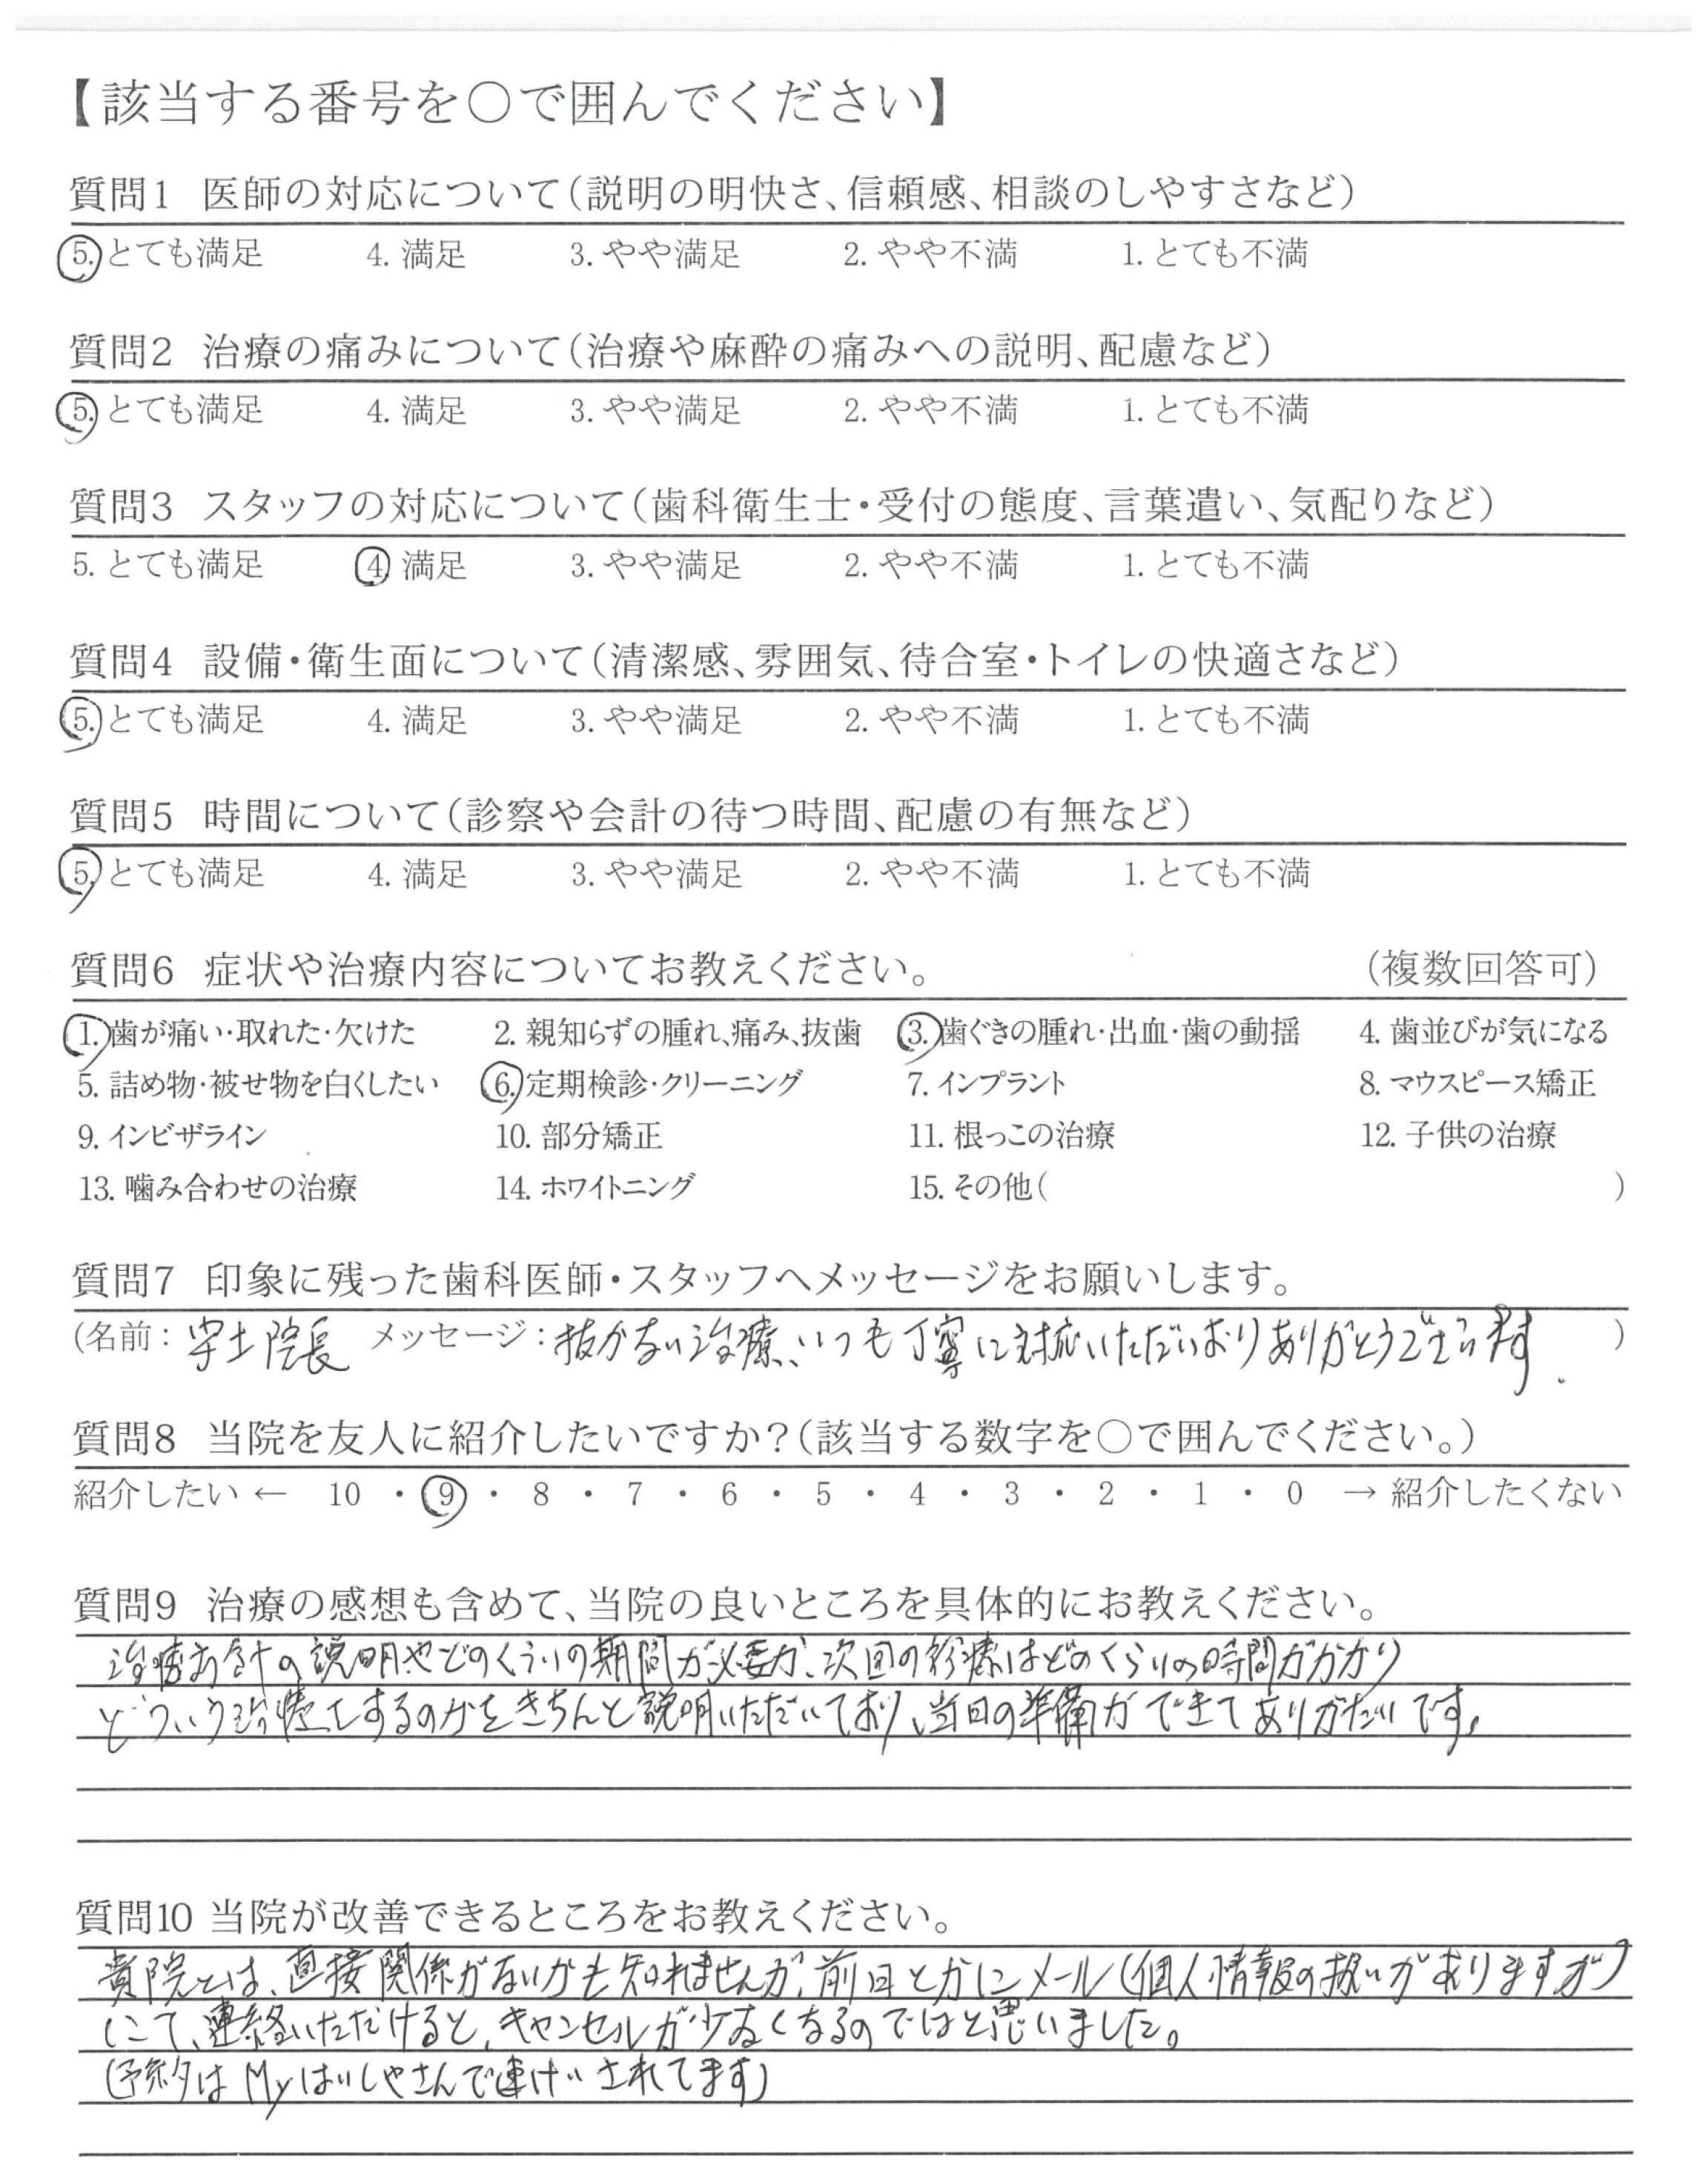 【該当する番号を○で囲んでください】
質問1 医師の対応について(説明の明快さ、信頼感、相談のしやすさなど)
5. とても満足 4. 満足 3. やや満足 2. やや不満 1. とても不満
質問2 治療の痛みについて(治療や麻酔の痛みへの説明、配慮など)
5. とても満足 4. 満足 3. やや満足 2. やや不満 1. とても不満
質問3 スタッフの対応について(歯科衛生士・受付の態度、言葉遣い、気配りなど)
5. とても満足 4. 満足 3. やや満足 2. やや不満 1. とても不満
質問4 設備・衛生面について(清潔感、雰囲気、待合室・トイレの快適さなど)
5. とても満足 4. 満足 3. やや満足 2. やや不満 1. とても不満
質問5 時間について(診察や会計の待つ時間、配慮の有無など)
5. とても満足 4. 満足 3. やや満足 2. やや不満 1. とても不満
質問6 症状や治療内容についてお教えください。 (複数回答可)
1. 歯が痛い・取れた・欠けた 2. 親知らずの腫れ、痛み、抜歯 3. 歯ぐきの腫れ・出血・歯の動揺 4. 歯並びが気になる
5. 詰め物・被せ物を白くしたい 6. 定期検診・クリーニング 7. インプラント 8. マウスピース矯正
9. インビザライン 10. 部分矯正 11. 根っこの治療 12. 子供の治療
13. 噛み合わせの治療 14. ホワイトニング 15. その他( )
質問7 印象に残った歯科医師・スタッフへメッセージをお願いします。
(名前: 院長 メッセージ: 抜かない治療、いつも丁寧に対応いただいおりありがとうございます. )
質問8 当院を友人に紹介したいですか?(該当する数字を○で囲んでください。)
紹介したい ← 10 ・ 9 ・ 8 ・ 7 ・ 6 ・ 5 ・ 4 ・ 3 ・ 2 ・ 1 ・ 0 → 紹介したくない
質問9 治療の感想も含めて、当院の良いところを具体的にお教えください。
治療方針の説明やどのくらいの期間が必要か、次回の診療はどのくらいの時間がかかり
どういう治療をするのかをきちんと説明いただいており、当日の準備ができてありがたいです。
質問10 当院が改善できるところをお教えください。
貴院とは、直接関係がないかも知れませんが、前日とかにメール(個人情報の扱いがありますが)
にて、連絡いただけると、キャンセルが少なくなるのではと思いました。
(予約はMyはいしゃさんで連けいされてます)